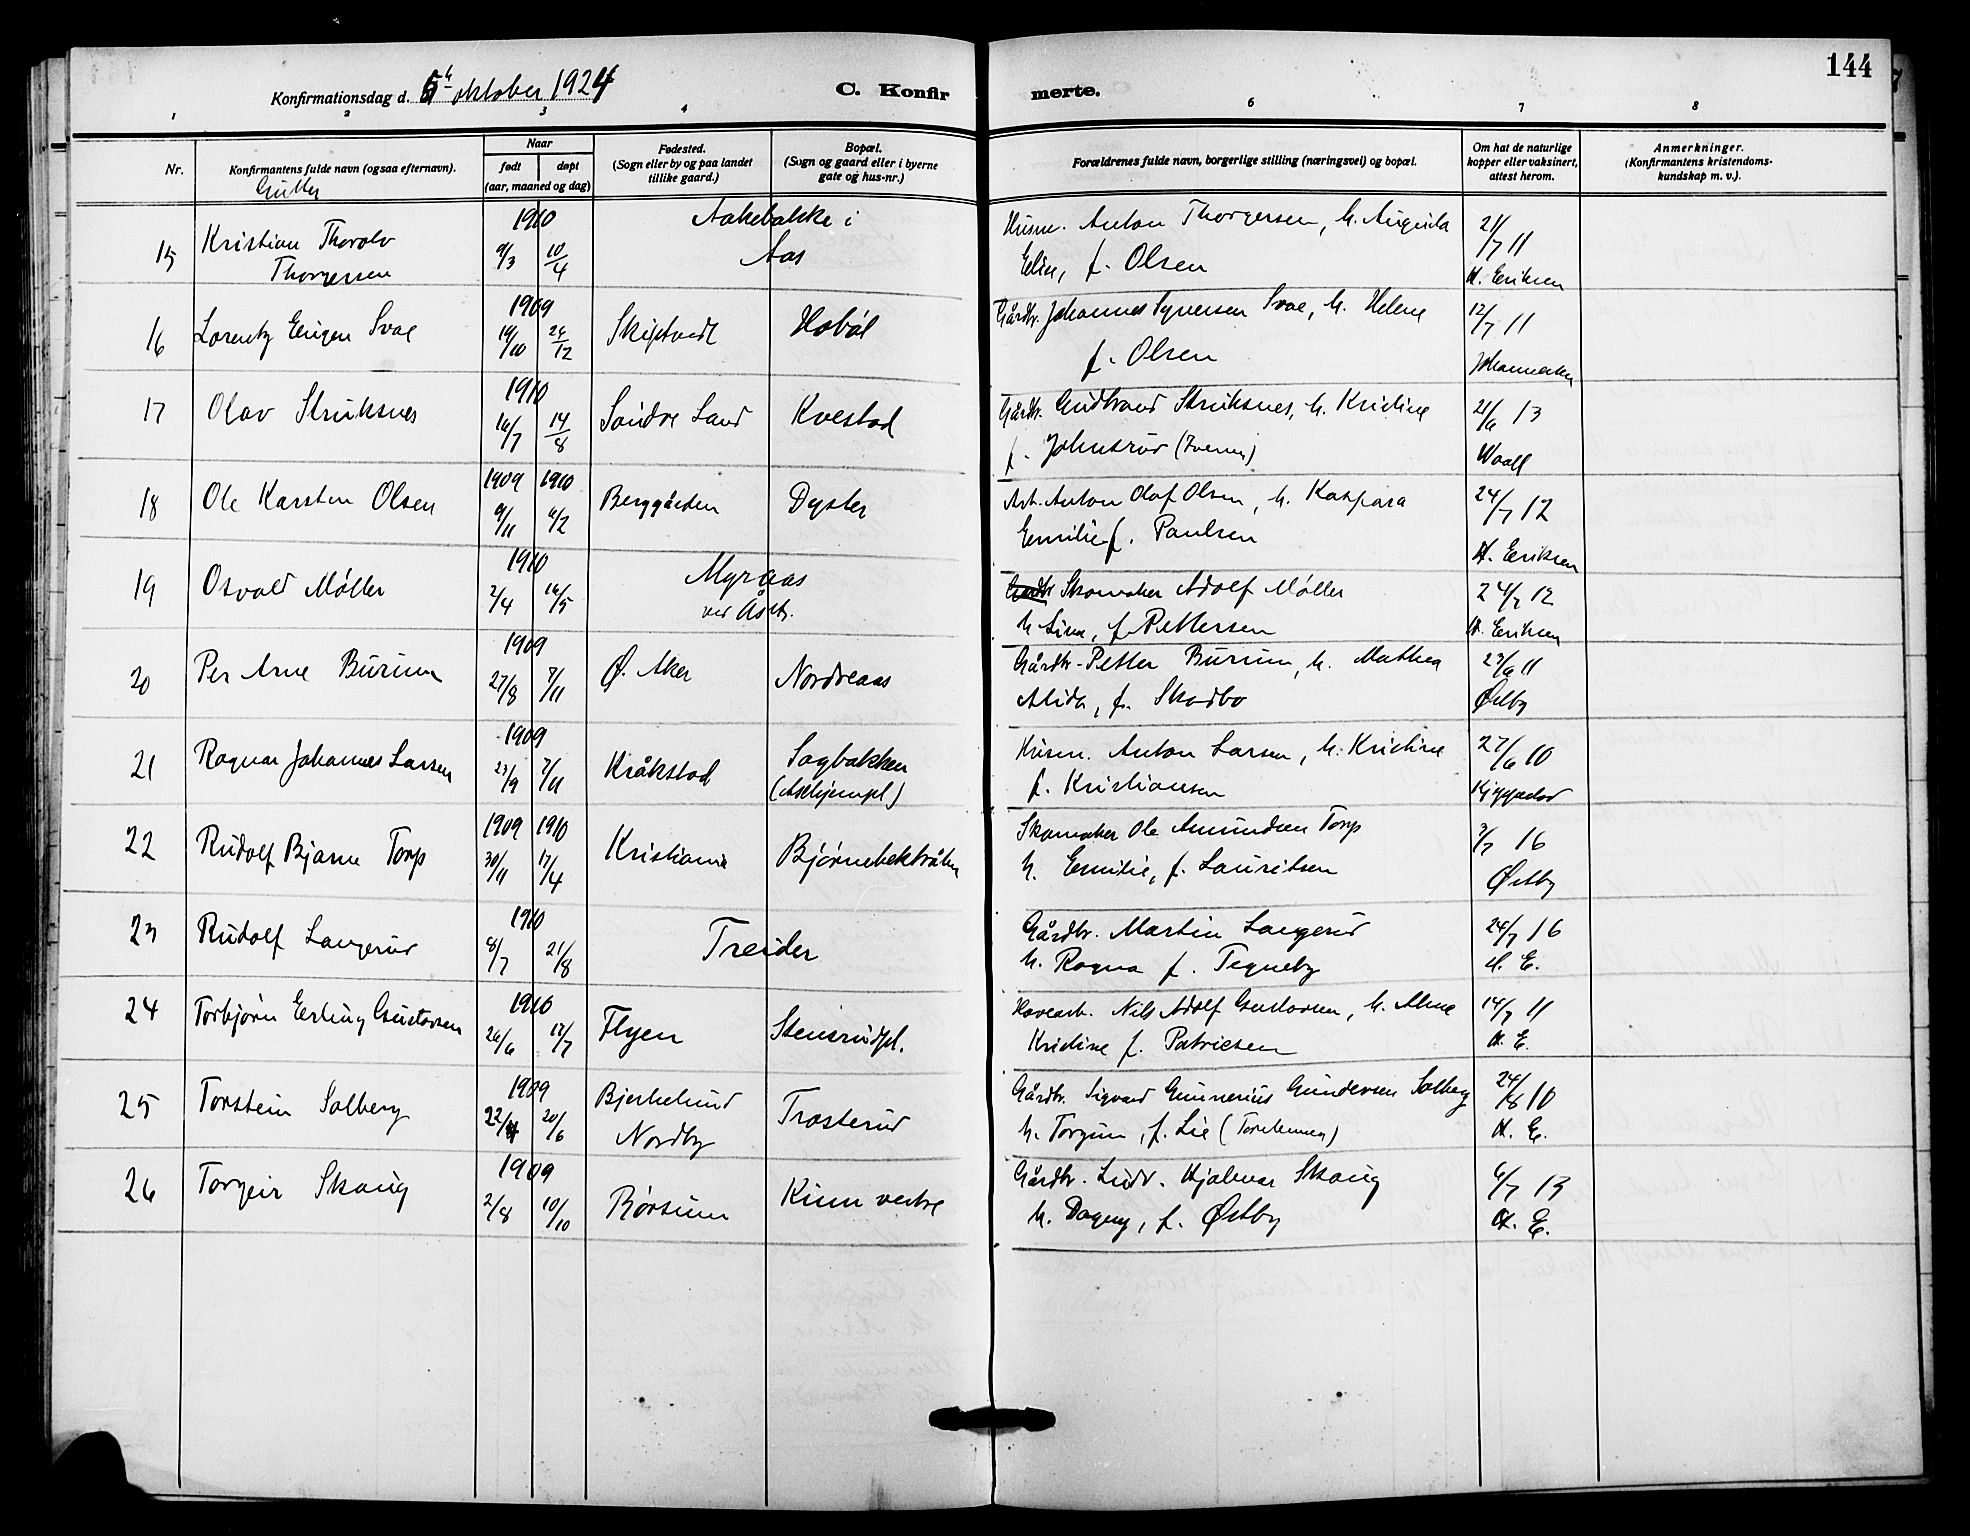 144
Konfirmationsdag d. 5te oktober 1924
C. Konfirmerte.
1 2 3 4 6 7 8
Nr.
Konfirmantens fulde navn (ogsaa efternavn).
Gutter
Naar
født døpt
(aar, maaned og dag)
Fødested.
(Sogn eller by og paa landet
tillike gaard.)
Bopæl.
(Sogn og gaard eller i byerne
gate og hus-nr.)
Forældrenes fulde navn, borgerlige stilling (næringsvei) og bopæl.
Om hat de naturlige
kopper eller vaksinert,
attest herom.
Anmerkninger.
(Konfirmantens kristendoms-
kundskap m. v.).
15 Kristian Thorolv Thorgersen 1910 9/3 10/4 Aakebakke i Aas
Husm. Anton Thorgersen, h. Augusta
Elise, f. Olsen
21/7 11
H. Eriksen
16 Lorentz Eugen Svae 1909 19/10 26/12 Skiptvedt Hobøl
Gårdbr. Johannes Syversen Svae, h. Helene
f. Olsen
12/7 11
Johannesen
17 Olav Struksnes 1910 16/7 14/8 Søndre Land Kvestad
Gårdbr. Gudbrand Struksnes, h. Kristine
f. Johnsrud
21/6 13
Waall
18 Ole Karsten Olsen 1909 9/11 1910 6/2 Berggården Dyster
Arb. Anton Olaf Olsen, h. Kaspara
Emilie f. Paulsen
24/7 12
H. Eriksen
19 Osvald Møller 1910 2/4 16/5 Myraas
ved Åsstr.
Skomaker Adolf Møller
h. Lina, f. Pettersen
24/7 12
H. Eriksen
20 Per Arne Burum 1909 27/8 7/11 Ø. Aker Nordreaas
Gårdbr. Petter Burum, h. Mathea
Alida, f. Skadbo
23/6 11
Østby
21 Ragnar Johannes Larsen 1909 23/9 7/11 Kråkstad Sagbakken
(Askhjempl)
Husm. Anton Larsen, h. Kristine
f. Kristiansen
27/6 10
22 Rudolf Bjarne Torp 1909 30/11 1910 17/4 Kristiania Bjørnebekbråten
Skomaker Ole Amundsen Torp
h. Emilie, f. Lauritsen
3/7 16
Østby
23 Rudolf Langerud 1910 8/7 21/8 Treider
Gårdbr. Martin Langerud
h. Ragna f. Tegneby
24/7 16
H. E.
24 Torbjørn Erling Gustavsen 1910 26/6 17/7 Flyen Stensrudpl.
Havearb. Nils Adolf Gustavsen, h. Alma
Kristine f. Patricsen
14/7 11
H. E.
25 Torstein Solberg 1909 22/4 20/6 Bjerkelund
Nordby Trosterud
Gårdbr. Sigvard Gunnerius Gundersen Solberg
h. Torgun, f. Lie
24/8 10
H. E.
26 Torgeir Skaug 1909 2/8 10/10 Børsum Kinn vestre
Gårdbr. Ludv. Hjalmar Skaug
h. Dagny, f. Østby
6/7 13
H. E.